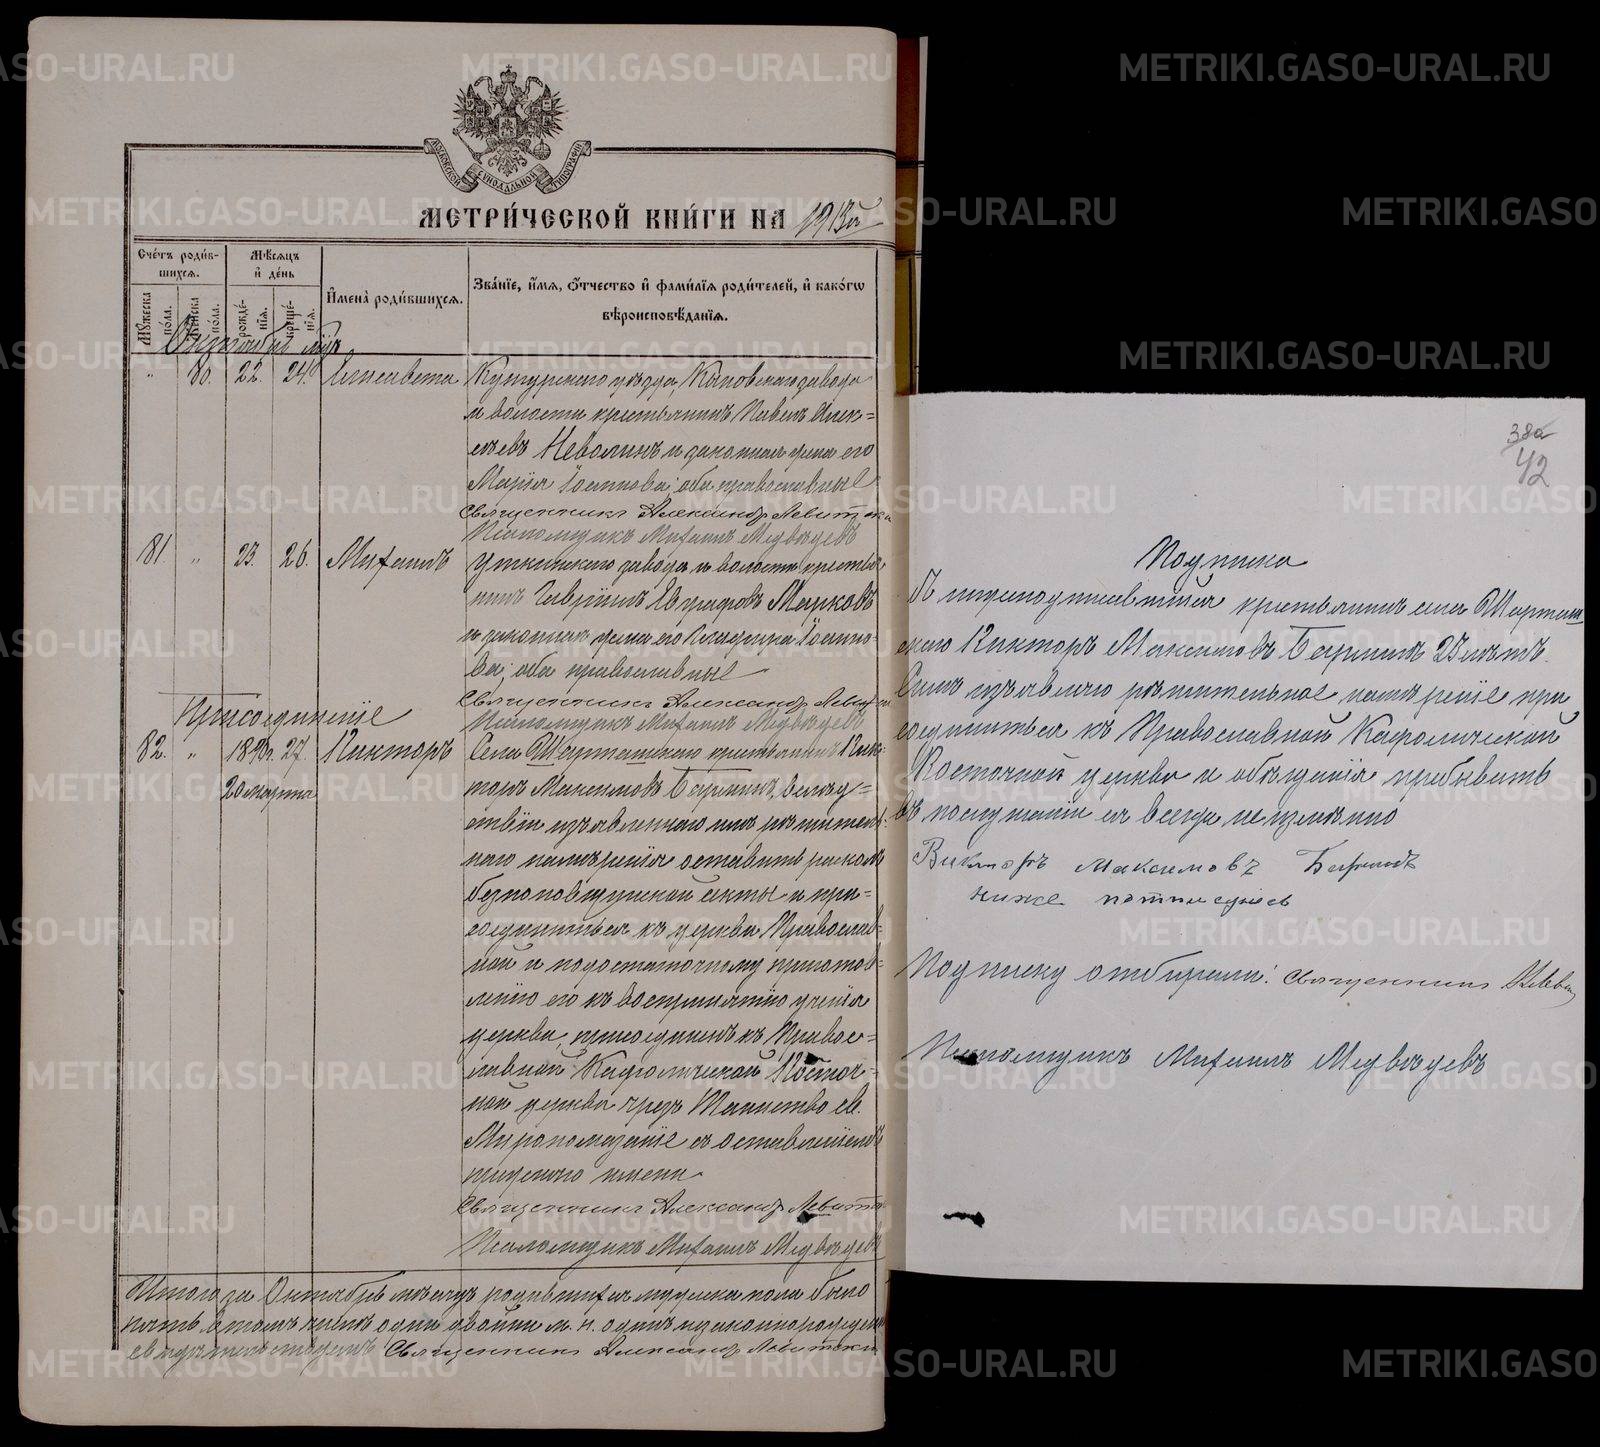 МОСКОВСКОЙ СѴНОДАЛЬНОЙ ТИПОГРАФІИ
МЕТРИ́ЧЕСКОЙ КНИ́ГИ НА 1913й
Сче́тъ роди́в-
шихся.
Мѣ́сяцъ
и҆ де́нь
И҆мена̀ роди́вшихся.
Зва́нїе, и҆́мя, ѻ҆́тчество и҆ фами́лїя роди́телей, и҆ како́гѡ
вѣроисповѣ́данїя.
Му́жеска по́ла.
Же́нска по́ла.
рожде́-
нїя.
креще́-
нїя.
Октябрь м-цъ
" 80. 22. 24. Елисавета
Кунгурскаго уѣзда, Кыновскаго завода
и волости крестьянинъ Павелъ Алек-
сѣевъ Неволинъ и законная жена его
Марія Іоаннова; оба православные
Священникъ Александръ Левитскій
Псаломщикъ Михаилъ Медвѣдевъ
81. " 23. 26. Михаилъ
Уткинскаго завода и волости крестья-
нинъ Гавріилъ Евграфовъ Марковъ
и законная жена его Іоанно-
ва; оба православные
Священникъ Александръ Левитскій
Псаломщикъ Михаилъ Медвѣдевъ
Присоединеніе
82. " 1890г. 27. Викторъ
20 марта
Села Шарташскаго крестьянинъ Вик-
торъ Максимовъ Бармин, вслѣд-
ствіи изъявленнаго имъ рѣшитель-
наго намѣренія оставить расколъ
безпоповщинской секты и при-
соединиться къ церкви Православ-
ной и по достаточному пригото-
ленію его къ воспріятію ученія
церкви, присоединенъ къ Правос-
лавной Каѳолической Восточ-
ной церкви чрезъ Таинство св.
Мѵропомазаніе съ оставленіемъ
прежняго имени
Священникъ Александръ Левитскій
Псаломщикъ Михаилъ Медвѣдевъ
Итого за Октябрь мѣсяцъ родившихся мужеска пола было
пять въ томъ числѣ одни двойни м. п. одинъ незаконнорожден
Священникъ Александръ Левитскій
38а
42
Подписка
Я нижеподписавшійся крестьянинъ села Шарташ
скаго Викторъ Максимовъ Барминъ 23 лѣтъ.
Симъ изъявляю рѣшительное намѣреніе при
соединиться къ Православной Каѳолической
Восточной церкви и обѣщанія пребывать
въ послушаніи ея всегда неизмѣнно
Викторъ Максимовъ Барминъ
ниже
Подписку отбирали: Священникъ А Леви
Псаломщикъ Михаилъ Медвѣдевъ
METRIKI.GASO-URAL.RU